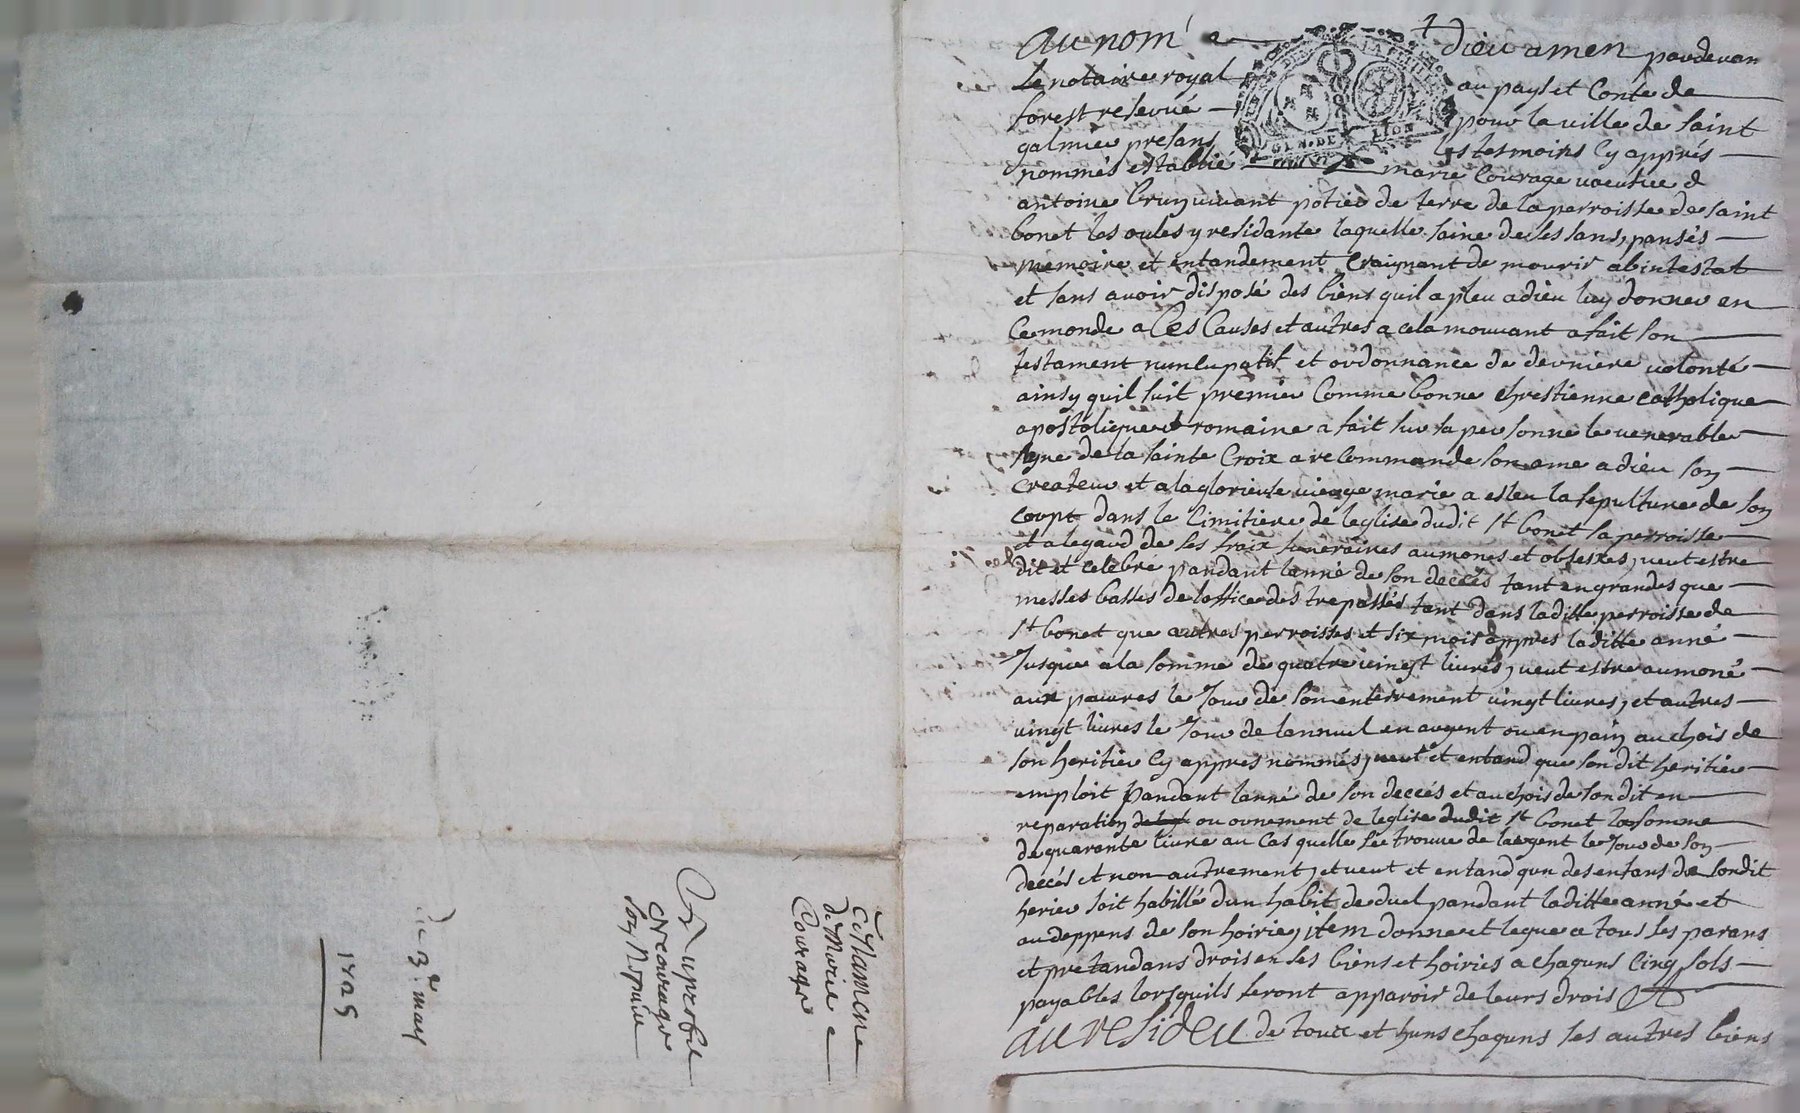 au nom de dieu amen pardevan
le notaire royal au pays et Conté de
forest reservé pour la ville de saint
galmier presans les tesmoins cy apprés
nommés establié marie Courage vaeufve d
antoine brun vivant potier de terre de la perroisse de saint
bonet les oules y residante laquelle saine de ses sans, pansés
memoire et entandement Craignant de mourir abintestat
et sans avoir disposé des biens quil a pleu a dieu luy donner en
Ce monde a Ces Causes et autres a cela mouvant a fait son
testament nuncupatif et ordonnance de derniere volonté
ainsy quil suit premier Comme bonne chrestienne catholique
apostolique et romaine a fait sur sa personne le venerable
signe de la sainte Croix a recommande son ame a dieu son
Createur et a la glorieuse vierge marie a esleu la sepulture de son
corps dans le Cimitiere de leglise dudit st bonet sa perroisse
et a legard de ses fraix funeraires aumones et obseques, veut estre
dit et celebré pandant lanné de son deccés tant en grandes que
messes basses de loffice des trepassés tant dans laditte perroisse de
st bonet que autres perroisses et six mois appres laditte anné
Jusque a la somme de quatre vingt livres, veut estre aumoné
aux pauvres le Jour de son enterrement vingt livres, et autres
vingt livres le Jour de lannuel en argent ou en pain au chois de
son heritier Cy appres nommés, veut et entand que son dit heritier
emploit pandant lanné de son deccés et au chois de son dit en
reparation ou ornement de leglise dudit st bonet la somme
de quarante livre au Cas quelle se trouve de largent le Jour de son
deccés et non autrement, et veut et entand qun des enfans de sondit
herier soit habillé dun habit de duel pandant laditte anné et
au deppens de son hoirie, item donne et legue a tous ses parans
et pretandans drois en ses biens et hoiries a chaquns Cinq sols
payables lorsquils feront apparoir de leurs drois
au residu de tous et huns chaquns ses autres biens
GEN. DE LION
Testament
de Marie
Courage
Au proffit
son Nepveu
du 3e may
1725